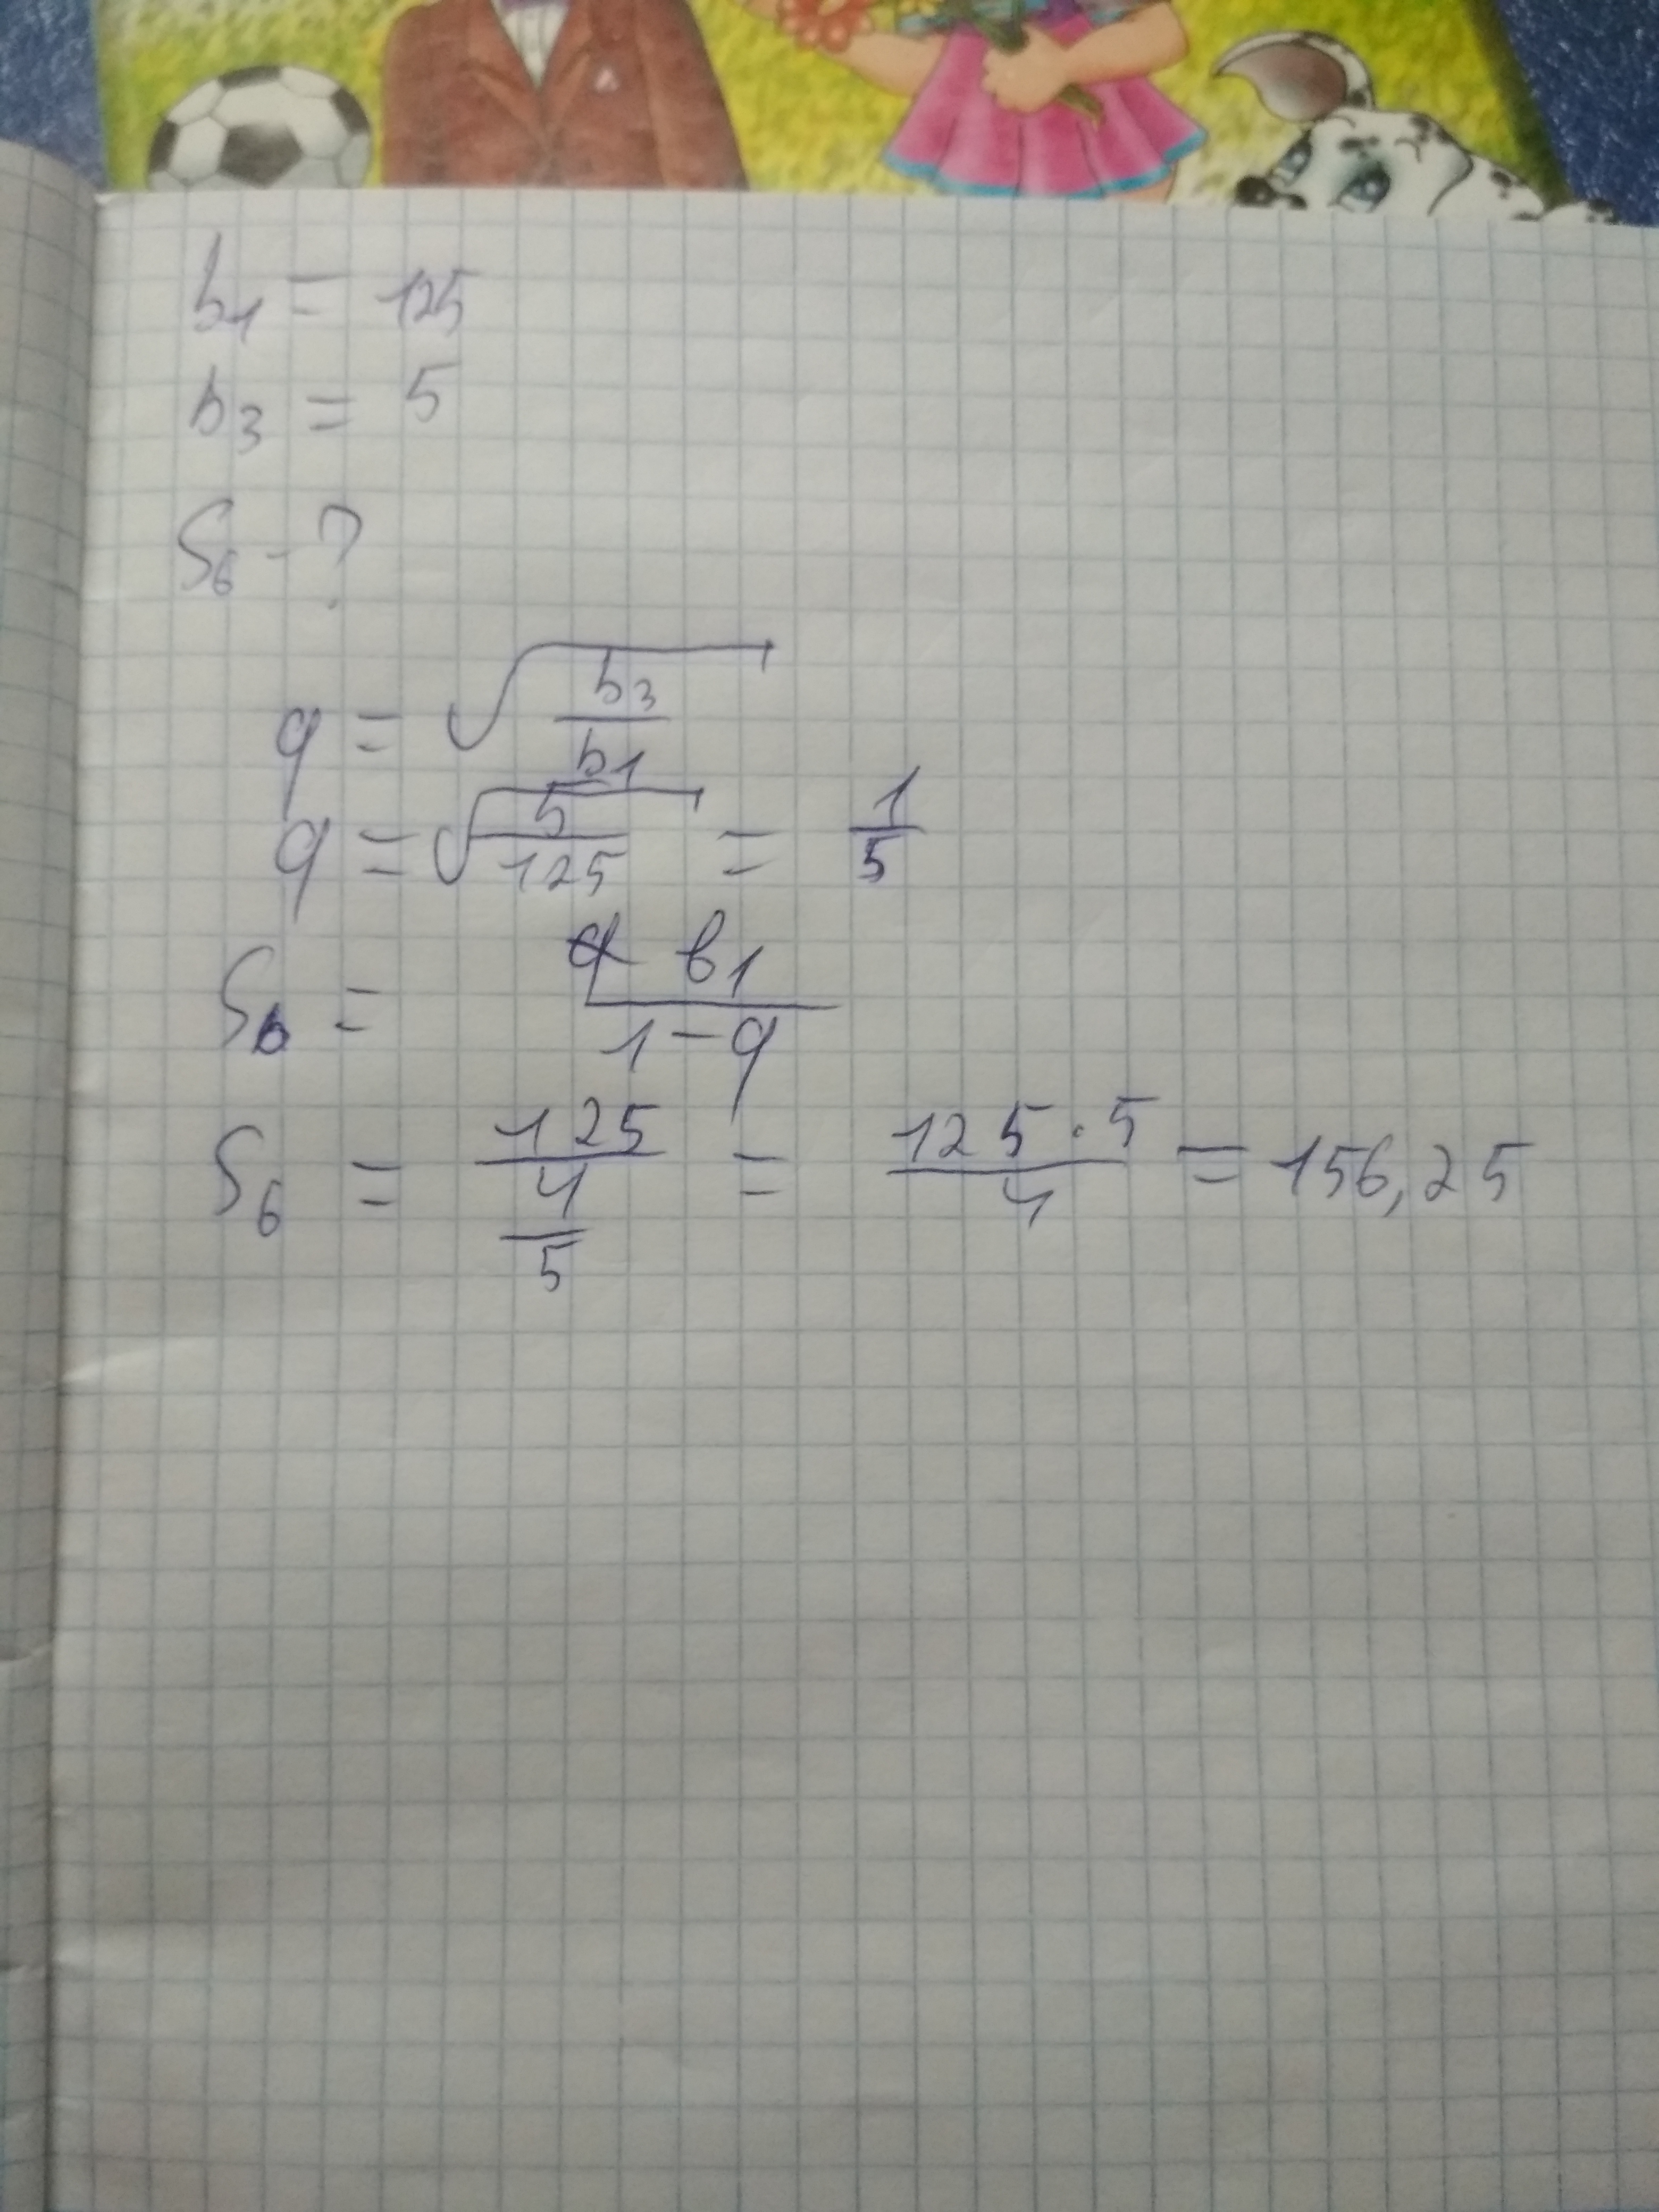 b₁ = 125
b₃ = 5
S₆ - ?
q = √(b₃/b₁)
q = √(5/125) = 1/5
S₆ = b₁/(1-q)
S₆ = 125/(4/5) = (125·5)/4 = 156,25